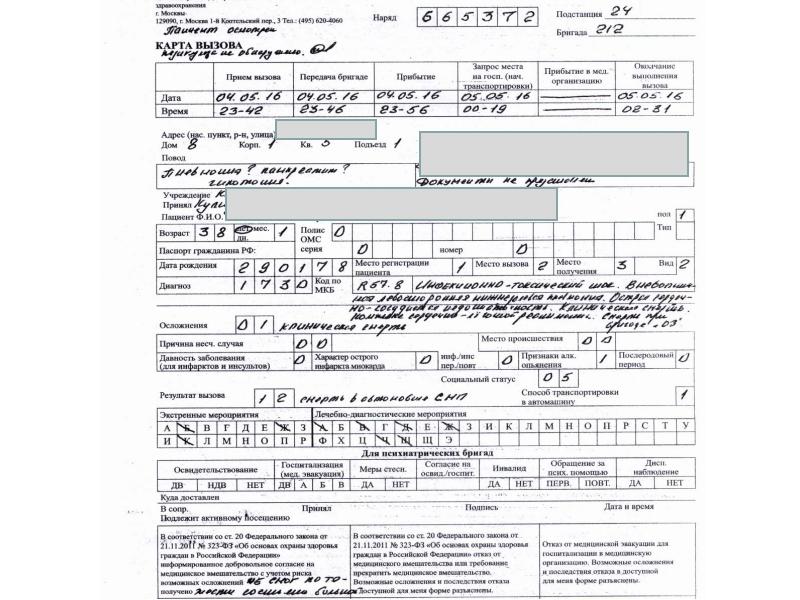 здравоохранения
г. Москвы
129090, г. Москва 1-й Коптельский пер., 3 Тел.: (495) 620-4060
Наряд 6 6 5 3 7 2
Подстанция 24
Бригада 212
Пациент осмотрен
КАРТА ВЫЗОВА
не обнаружено.
Прием вызова Передача бригаде Прибытие Запрос места на госп. (нач. транспортировки) Прибытие в мед. организацию Окончание выполнения вызова
Дата 04.05.16 04.05.16 04.05.16 05.05.16 05.05.16
Время 23-42 23-46 23-56 00-19 02-31
Адрес (нас. пункт, р-н, улица)
Дом 8 Корп. 1 Кв. 5 Подъезд 1
Повод
Пневмония? панкреатит?
гипотония. Документы не предъявлен
Учреждение К
Принял Кули
Пациент Ф.И.О. пол 1
Возраст 3 8 лет мес. дн. 1 Полис ОМС серия 0 Тип
Паспорт гражданина РФ: 0 номер 0
Дата рождения 2 9 0 1 7 8 Место регистрации пациента 1 Место вызова 2 Место получения 3 Вид 2
Диагноз 1 7 3 0 Код по МКБ R57.8 Инфекционно-токсический шок. Внебольнич-
ная левосторонняя нижнедолевая пневмония. Острая сердеч-
но-сосудистая недостаточность. Клиническая смерть.
Комплекс сердечно-легочной реанимации. Смерть при
бригаде "03"
Осложнения 0 1 клиническая смерть
Причина несч. случая 0 0 Место происшествия 0 0
Давность заболевания (для инфарктов и инсультов) 0 Характер острого инфаркта миокарда 0 инф./инс пер./повт 0 Признаки алк. опьянения 1 Послеродовый период 0
Социальный статус 0 5
Результат вызова 1 2 смерть в автомобиле СМП Способ транспортировки в автомашину 1
Экстренные мероприятия Лечебно-диагностические мероприятия
А Б В Г Д Е Ж З А Б В Г Д Е Ж З И К Л М Н О П Р С Т У
И К Л М Н О П Р Ф Х Ц Ч Ш Щ Э
Для психиатрических бригад
Освидетельствование Госпитализация (мед. эвакуация) Меры стесн. Согласие на освид./госпит. Инвалид Обращение за псих. помощью Дисп. наблюдение
ДВ НДВ НЕТ ДВ А Б В ДА НЕТ ДА НЕТ ПЕРВ. ПОВТ. ДА НЕТ
Куда доставлен
В сопр. Принял Подпись Дата и время
Подлежит активному посещению
В соответствии со ст. 20 Федерального закона от
21.11.2011 № 323-ФЗ «Об основах охраны здоровья
граждан в Российской Федерации»
информированное добровольное согласие на
медицинское вмешательство с учетом риска
возможных осложнений не смог по то-
получено тяжести состояния больного
В соответствии со ст. 20 Федерального закона от
21.11.2011 № 323-ФЗ «Об основах охраны здоровья
граждан в Российской Федерации» отказ от
медицинского вмешательства или требование
прекратить медицинское вмешательство.
Возможные осложнения и последствия отказа
в доступной для меня форме разъяснены.
Отказ от медицинской эвакуации для
госпитализации в медицинскую
организацию. Возможные осложнения
и последствия отказа в доступной
для меня форме разъяснены.